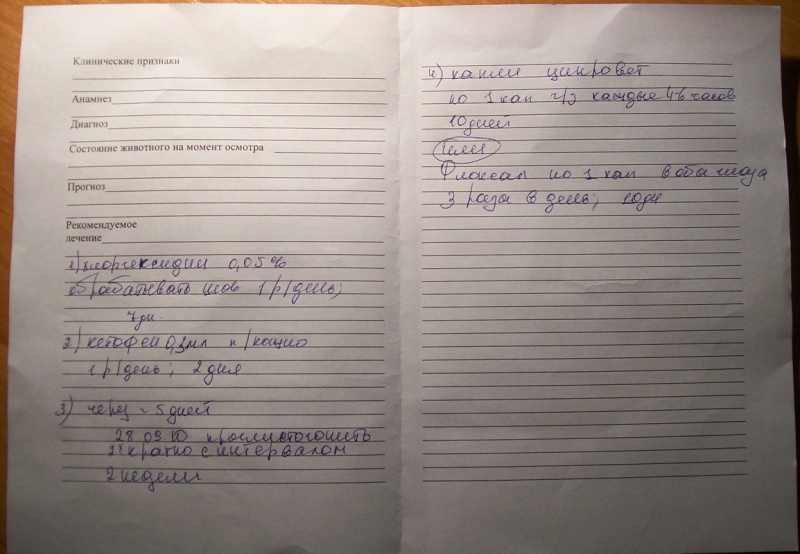 Клинические признаки
Анамнез
Диагноз
Состояние животного на момент осмотра
Прогноз
Рекомендуемое
лечение
1) хлоргексидин 0,05%
обрабатывать шов 1 р/день;
7 дн.
2) кетофен 0,3мл п/кожно
1 р/день; 2 дня
3) через ≈ 5 дней
28.09.10 проглистогонить
2х кратно с интервалом
2 недели
4) капли ципровет
по 1 кап каждые 4-6 часов
10 дней
или
Флоксал по 1 кап в оба глаза
3 раза в день; 10дн